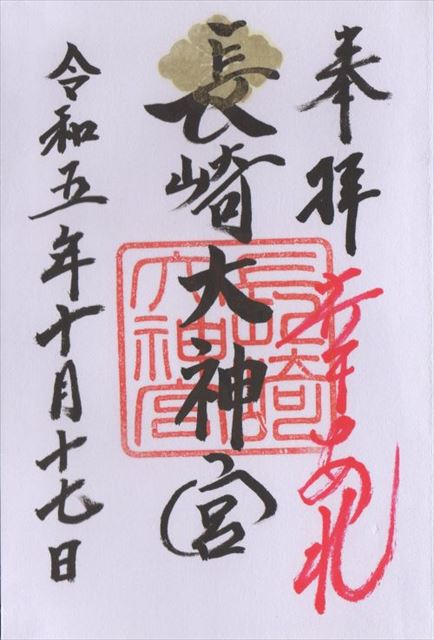 奉拝
幸先あれ
長崎大神宮
長崎大神宮
令和五年十月十七日